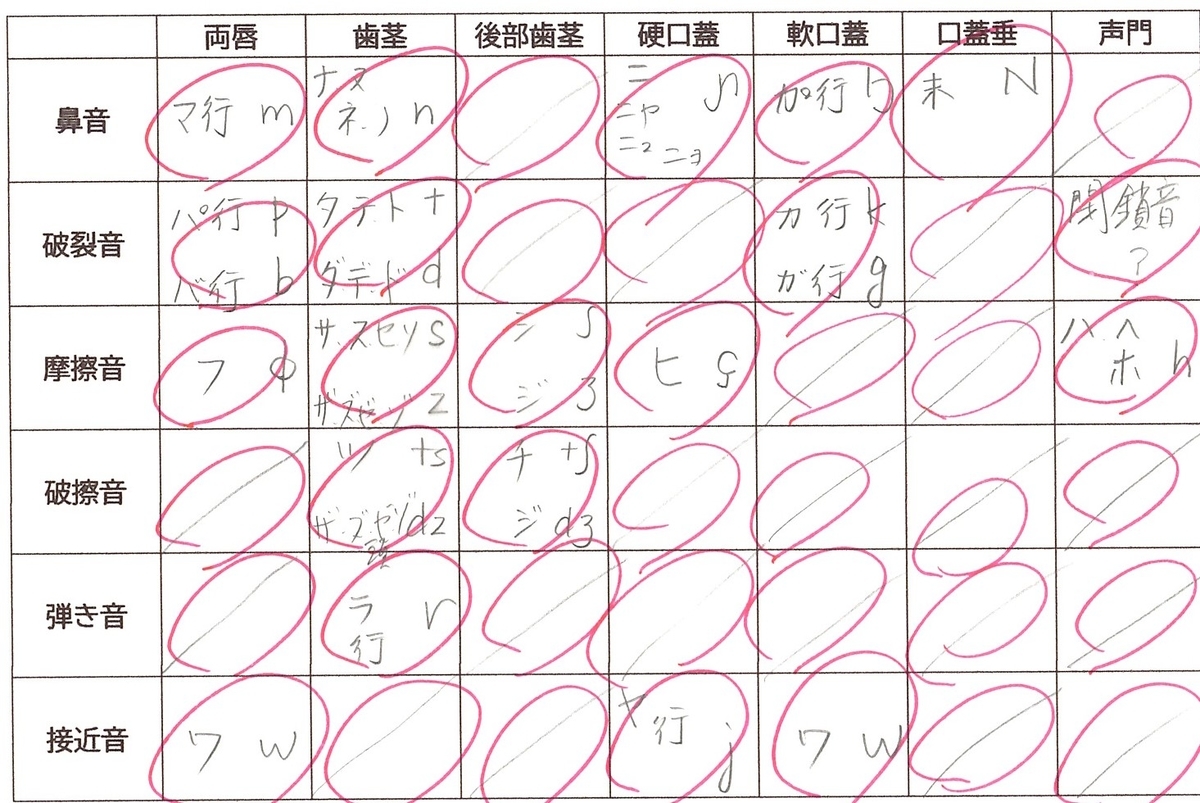 両唇 歯茎 後部歯茎 硬口蓋 軟口蓋 口蓋垂 声門
鼻音
マ行 m
ナヌ
ネノ n
ニ
ニャ
ニュ ニョ
ɲ
カ゚行 ŋ
末 N
破裂音
パ行 p
バ行 b
タテト t
ダデド d
カ行 k
ガ行 g
閉鎖音
?
摩擦音
フ ɸ
サスセソ s
ザズゼゾ z
シ ʃ
ジ ʒ
ヒ ç
ハヘ
ホ h
破擦音
ツ ts
ザズゼゾ dz
頭
チ tʃ
ジ dʒ
弾き音
ラ
行 r
接近音
ワ w
ヤ
行 j
ワ w